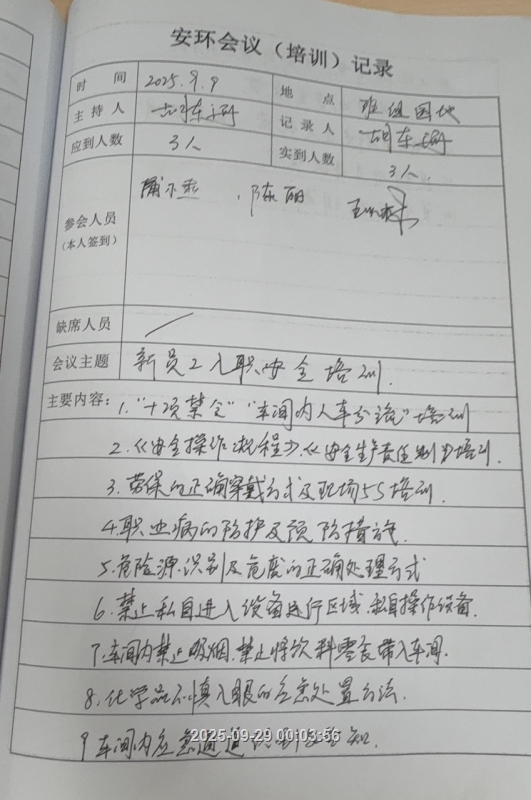 安环会议（培训）记录
时间 2025.9.9 地点 班组园地
主持人 记录人
应到人数 3人 实到人数 3人
参会人员 陈丽
（本人签到）
缺席人员 /
会议主题 新员工入职安全培训.
主要内容：1."十项禁令""车间内人车分流"培训
2.《安全操作规程》.《安全生产责任制》培训.
3.劳保的正确穿戴方式及现场5S培训.
4.职业病的防护及预防措施.
5.危险源识别及危废的正确处理方式
6.禁止私自进入设备运行区域.私自操作设备.
7.车间内禁止吸烟.禁止将饮料零食带入车间.
8.化学品不慎入眼的应急处置方法.
9车间内应急通道
2025-09-29 00:03:56